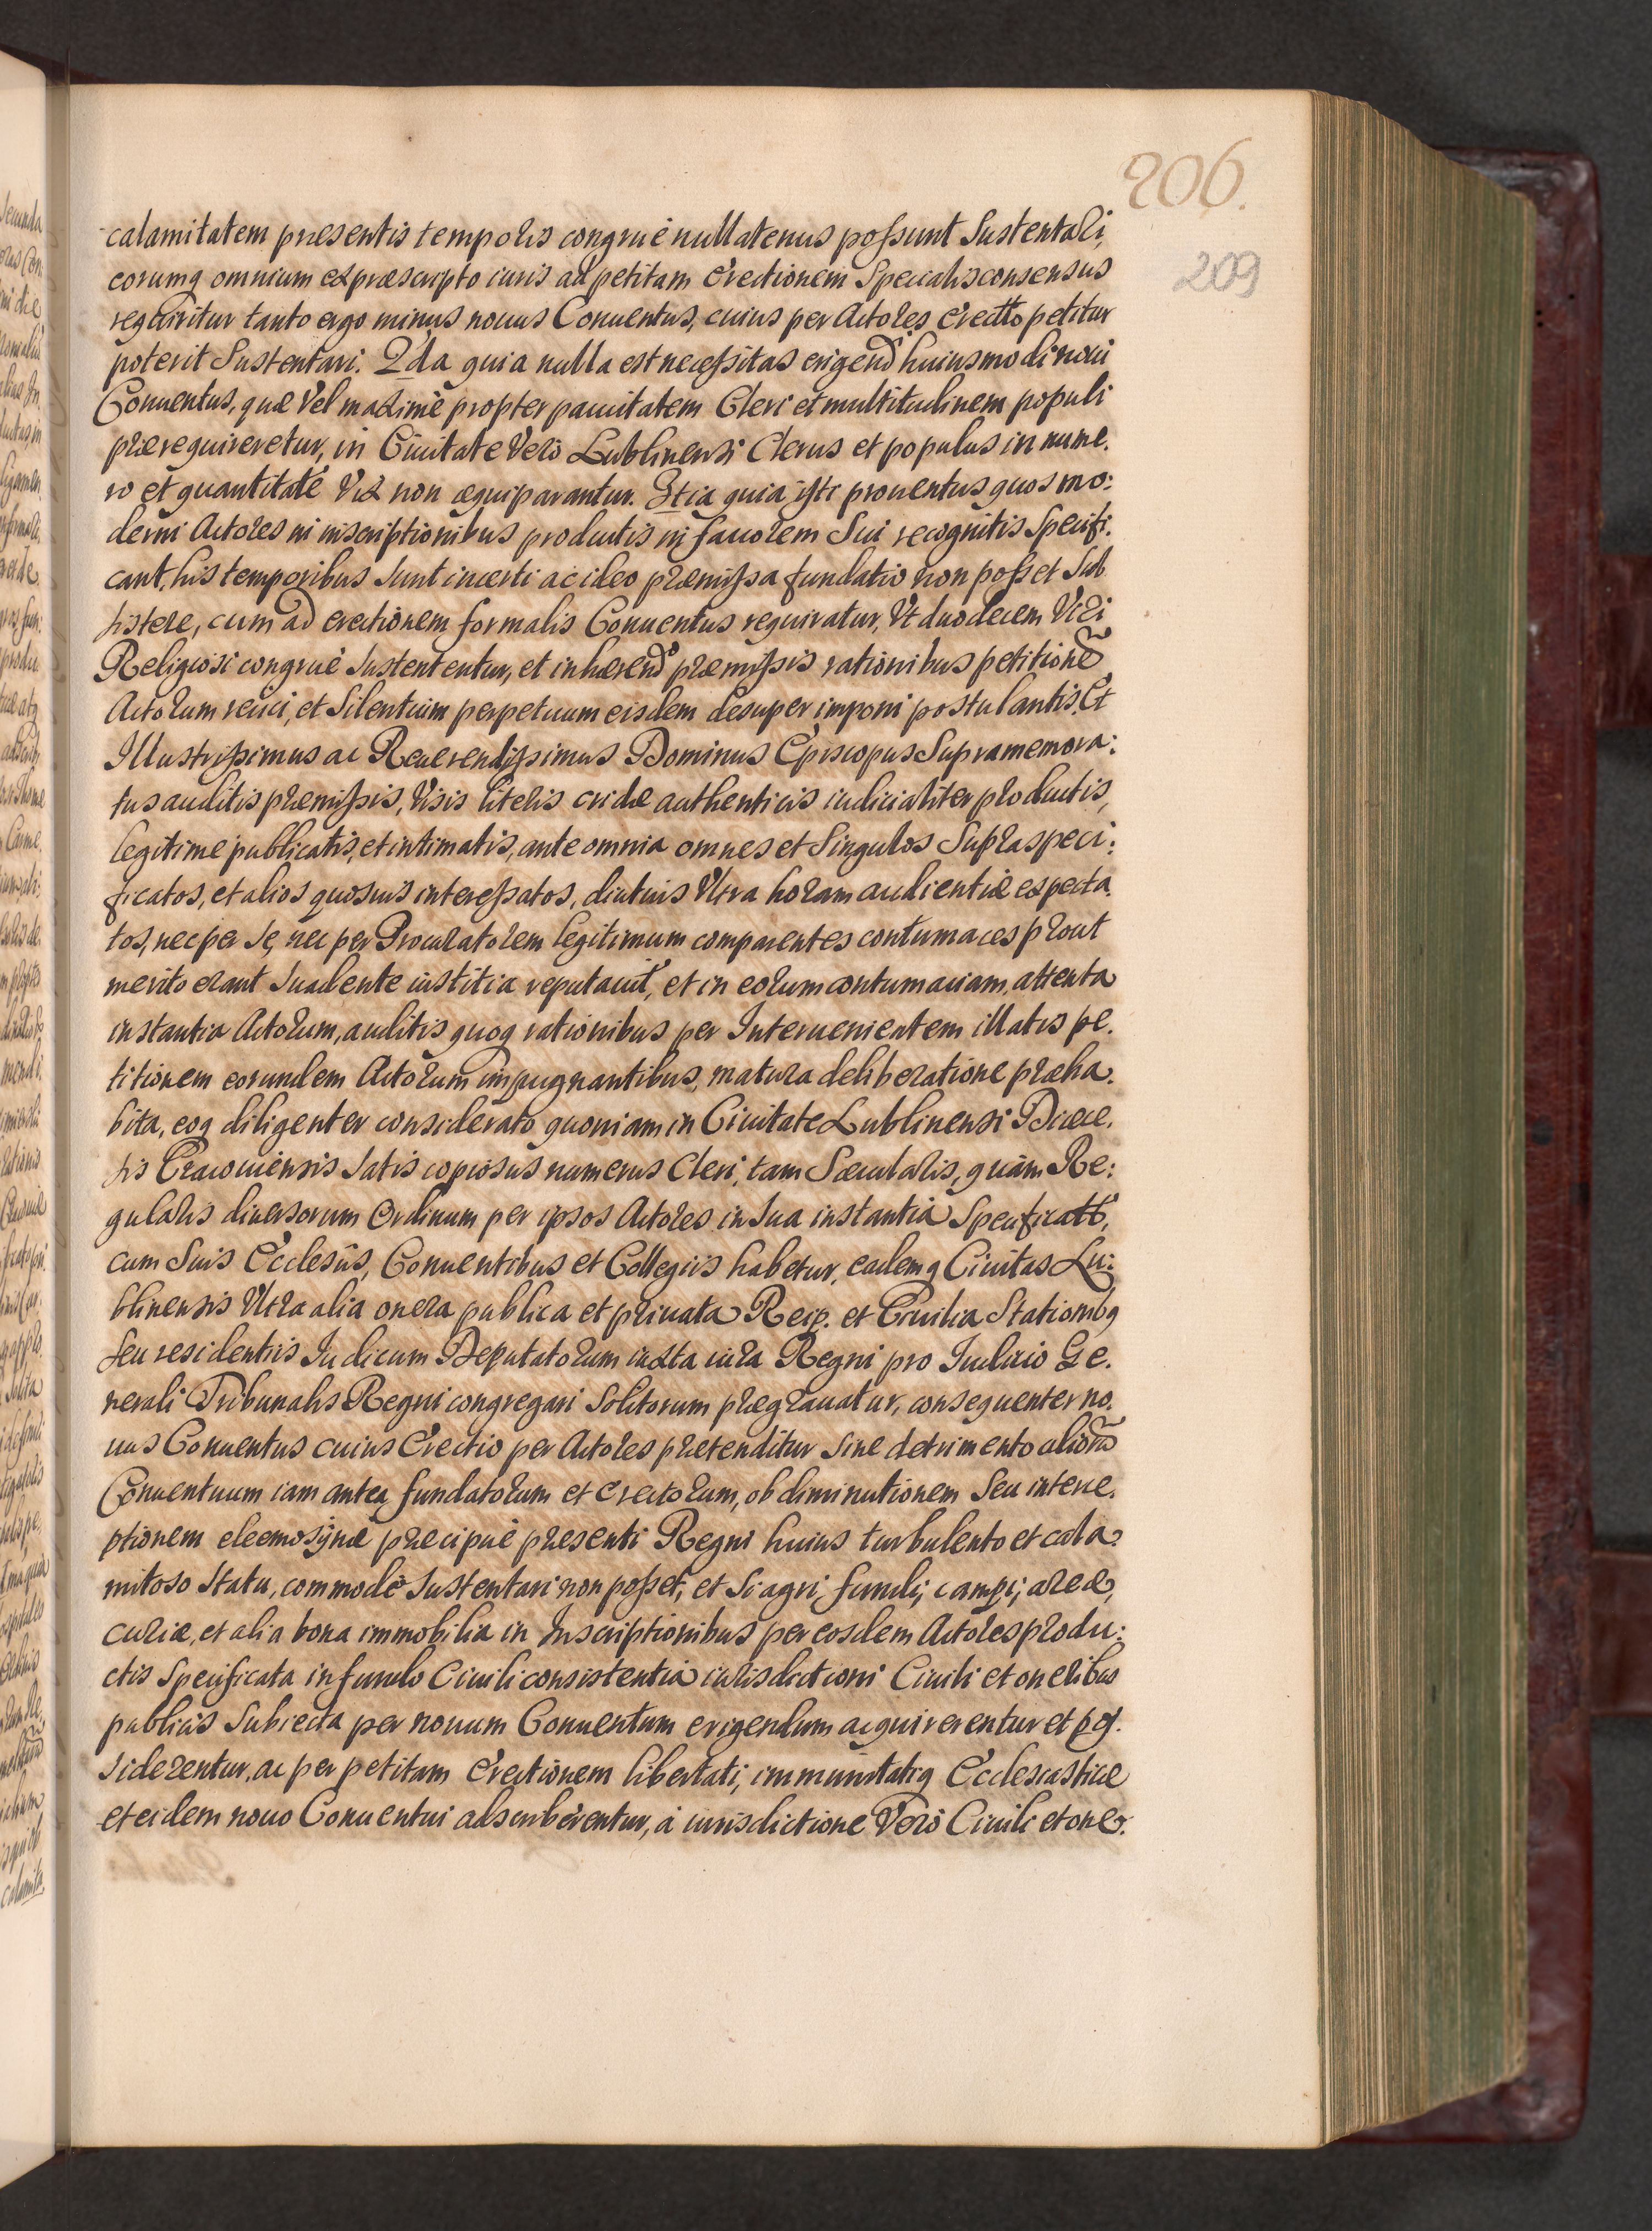 206.
209
calamitatem presentis temporis congruè nullatenus possunt Sustentari,
eorumq omnium ex præscripto iuris ad petitam Erectionem Specialis consensus
requiritur tanto ergo minus nouus Conuentus, cuius per Actores Erectto petitur
poterit Sustentari. 2da quia nulla est necessitas erigend huiusmodi noui
Conuentus, quæ Vel maximè propter paucitatem Cleri et multitudinem populi
prærequireretur, in Ciuitate Verò Lublinensi Clerus et populus in nume.
ro et quantitate Vix non æquiparantur. 3tia quia isti prouentus quos mo:
derni Actores in inscriptionibus productis in fauorem Sui recognitis Specifi.
cant, his temporibus Sunt incerti ac ideo præmissa fundatio non posset Sub
sistere, cum ad erectionem formalis Conuentus requiratur, Vt duodecem Viri
Religiosi congruè Sustententur, et inhærend præmissis rationibus petitione
Actorum reiici, et Silentium perpetuum eisdem desuper imponi postulantis. Et
Illustrissimus ac Reuerendissimus Dominus Episcopus Supramemora:
tus auditis præmissis, Visis literis cridæ authenticis iudicialiter productis,
legitime publicatis, et intimatis, ante omnia omnes et Singulos Supraspeci:
ficatos, et alios quosuis interessatos, diutius Vltra horam audientiæ expecta.
tos, nec per Se, nec per Procuratorem legitimum comparentes contumaces prout
merito erant Suadente iustitia reputauit, et in eorum contumaciam, attenta
instantia Actorum, auditis quoq rationibus per Interuenientem illatis pe.
titionem eorundem Actorum impugnantibus, matura deliberatione præha.
bita, eoq diligenter considerato quoniam in Ciuitate Lublinensi Diœce.
sis Cracouiensis Satis copiosus numerus Cleri, tam Sæcularis, quàm Re:
gularis diuersorum Ordinum per ipsos Actores in Sua instantia Specificatt,
cum Suis Ecclesiis, Conuentibus et Collegiis habetur, eademq Ciuitas Lu:
blinensis Vltra alia onera publica et priuata Reip. et Ciuilia Stationibq
Seu residentiis Iudicum Deputatorum iuxta iura Regni pro Iudicio Ge.
nerali Tribunalis Regni congregari Solitorum prægrauatur, consequenter no.
uus Conuentus cuius Erectio per Actores prætenditur Sine detrimento aliorū
Conuentuum iam antea fundatorum et Erectorum, ob diminutionem Seu interce.
ptionem eleemosÿnæ præcipuè presenti Regni huius turbulento et cala.
mitoso Statu, commodè Sustentari non posset, et Si agri, fundi, campi, areæ,
curiæ, et alia bona immobilia in Inscriptionibus per eosdem Actores produ:
ctis Specificata in fundo Ciuili consistentia iurisdictioni Ciuili et oneribus
publicis Subiecta per nouum Conuentum erigendum acquirerentur et pos.
siderentur, ac per petitam Erectionem libertati, immunitatiq Ecclesiasticæ
et eidem nouo Conuentui adscriberentur, à iurisdictione Verò Ciuili et one.